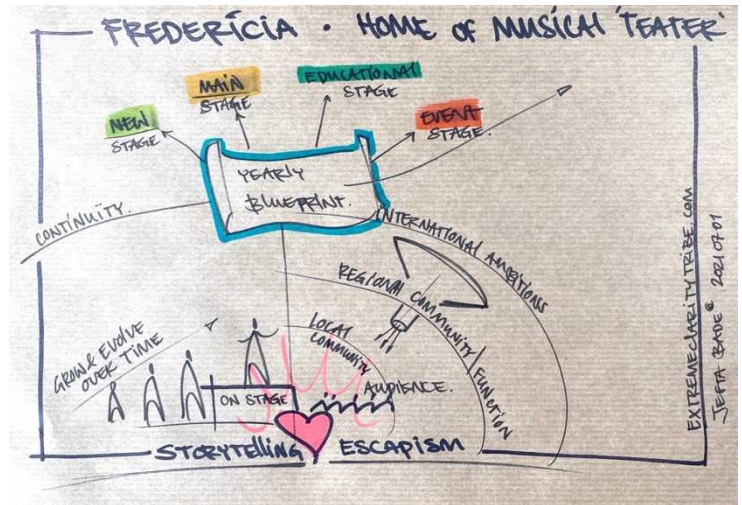 FREDERICIA • HOME OF MUSICAL 'TEATER'
NEW
STAGE
MAIN
STAGE
EDUCATIONAL
STAGE
EVENT
STAGE.
YEARLY
BLUEPRINT.
CONTINUITY.
INTERNATIONAL AMBITIONS
REGIONAL COMMUNITY/FUNCTION
LOCAL
COMMUNITY
GROW & EVOLVE
OVER TIME
ON STAGE
AUDIENCE.
STORYTELLING
ESCAPISM
EXTREMECLARITYTRIBE.COM
JEFTA BADE © 20210701